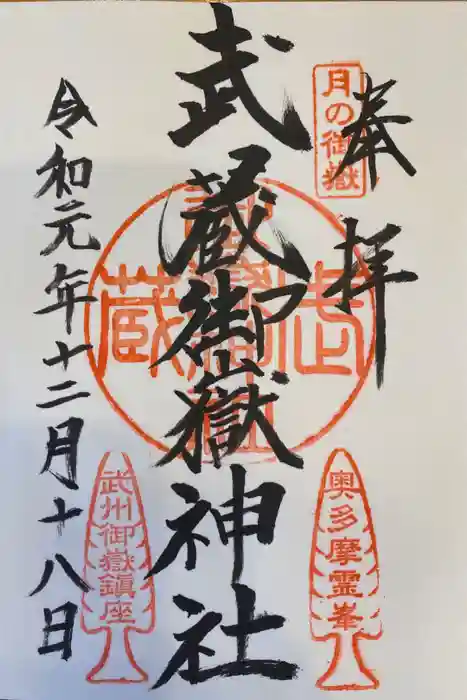 奉拝
月の御嶽
武蔵御嶽神社
令和元年十二月十八日
奥多摩霊峯
武州御嶽鎮座